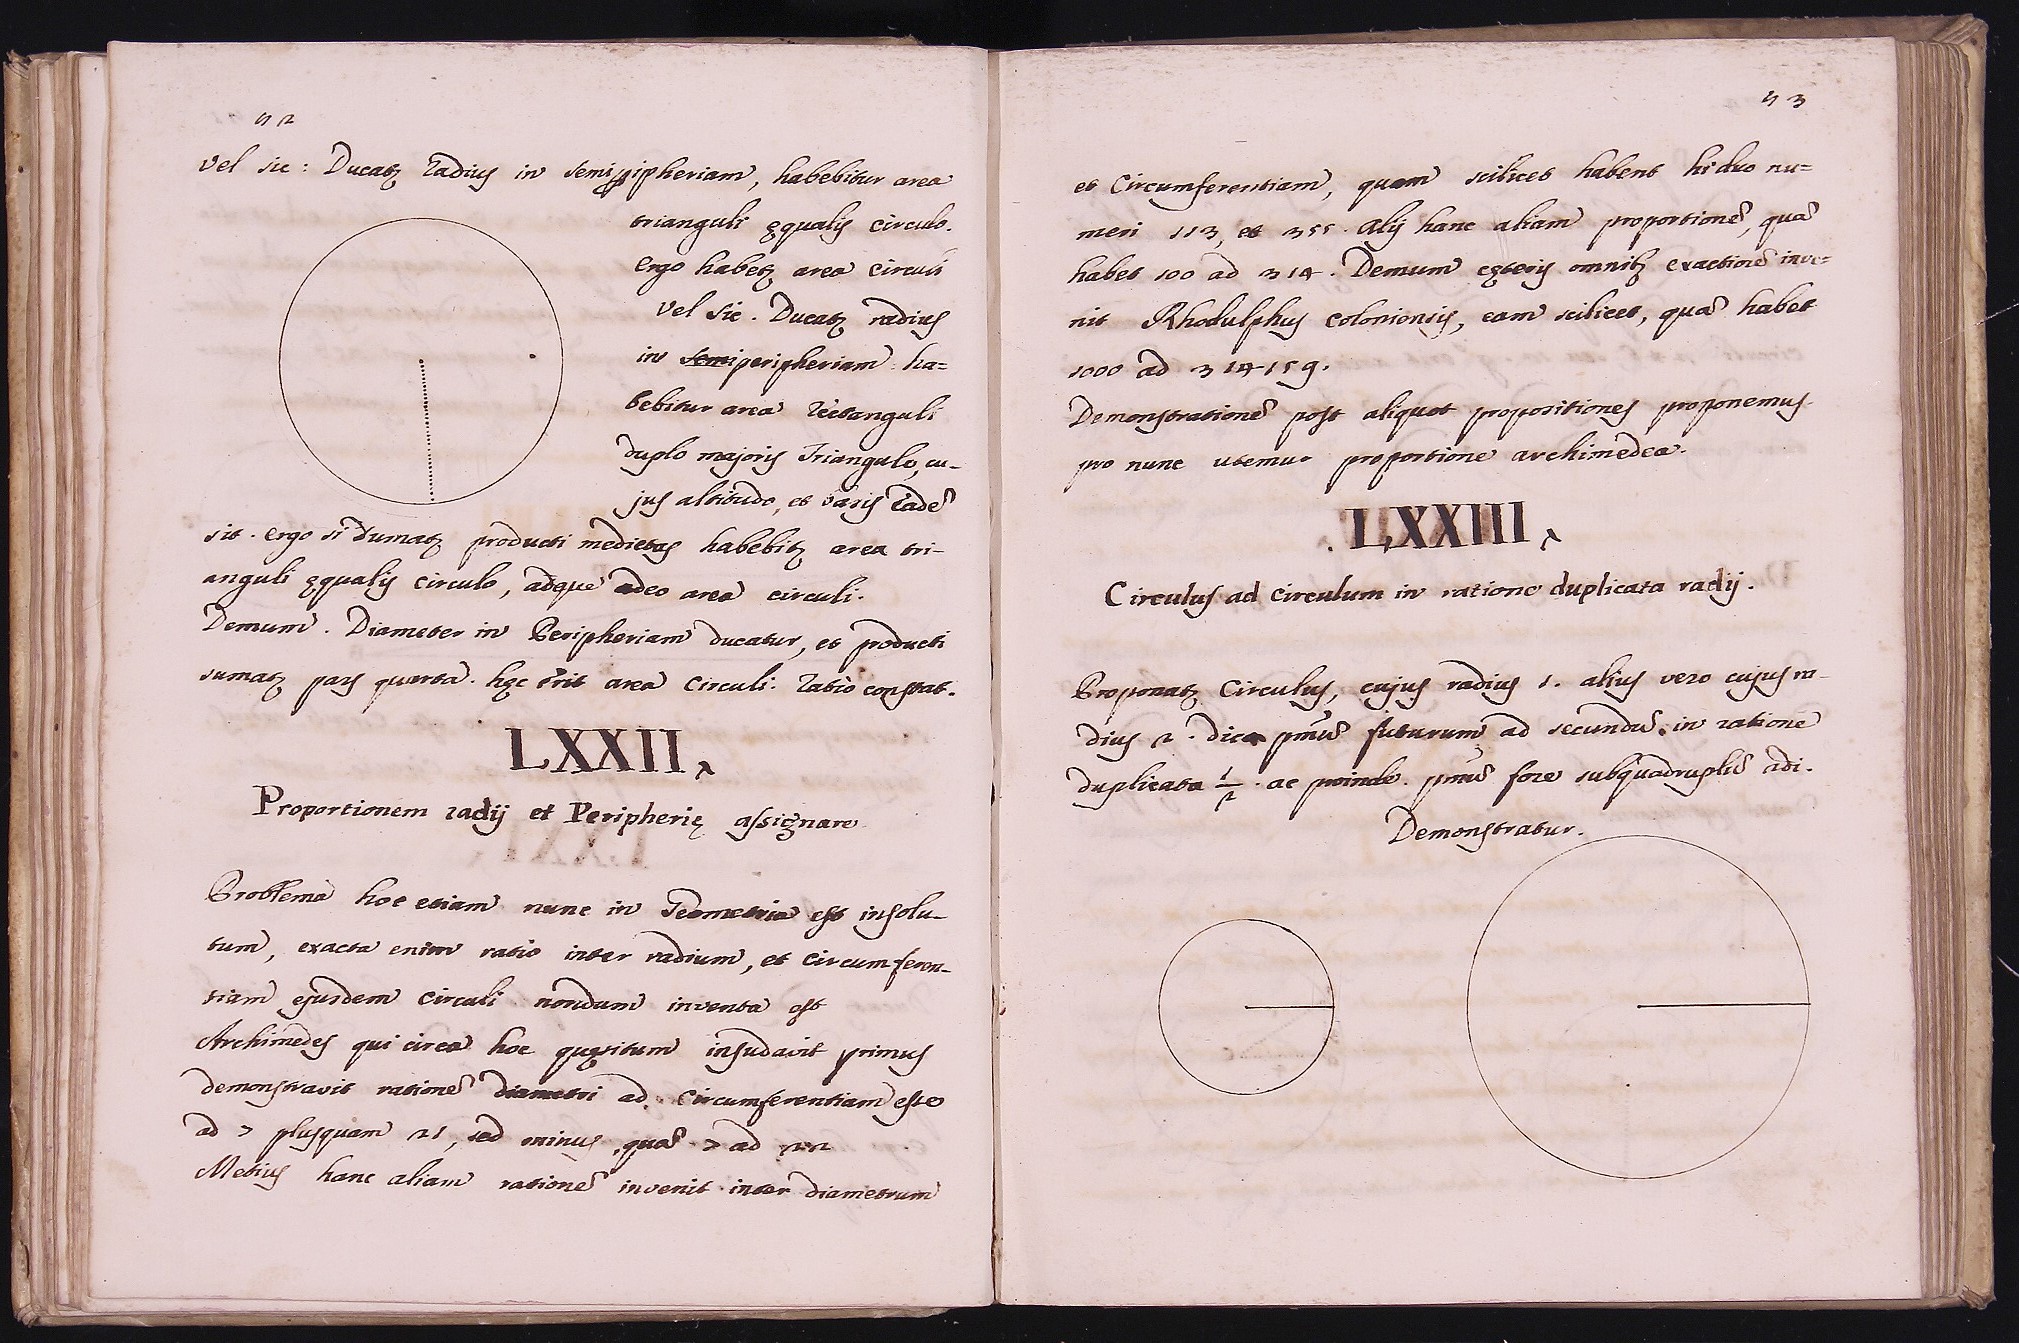 52
Vel sic: Ducatꝫ radius in semipipheriam, habebitur area
trianguli ęqualis circulo.
ergo habetꝫ area circuli
Vel sic. Ducatꝫ radius
in semiperipheriam ha=
bebitur area rectanguli
duplo majoris Triangulo, cu-
jus altitudo, et basis eadē
sit. ergo si sumatꝫ producti medietas habebitꝫ area tri-
anguli ęqualis circulo, adque adeo area circuli.
Demum. Diameter in Peripheriam ducatur, et producti
sumatꝫ pars quarta. hęc erit area Circuli. ratio constat.
LXXII
Proportionem radij et Peripherię assignare
Problema hoc etiam nunc in Geometria est insolu-
tum, exacta enim ratio inter radium, et circumferen-
tiam ejusdem circuli nondum inventa est
Archimedes qui circa hoc quęsitum insudavit primus
demonstravit rationē diametri ad circumferentiam esse
ad 7 plusquam 21, sed minus quā 7 ad 22
Metius hanc aliam rationē invenit inter diametrum
53
et Circumferentiam, quam scilicet habent hi duo nu=
meri 113, et 355. Alij hanc aliam proportionē, quā
habet 100 ad 314. Demum cęteris omnibꝫ exactiorē inve=
nit Rhodulphus coloniensis, eam scilicet, quā habet
1000 ad 314159.
Demonstrationē post aliquot propositiones proponemus
pro nunc utemur proportione archimedea.
LXXIII
Circulus ad circulum in ratione duplicata radij.
Proponatꝫ Circulus, cujus radius 1. alius vero cujus ra-
dius 2. dico pmū futurum ad secundū in ratione
duplicata 1/2. ac proinde pmū fore subquadruplū adi.
Demonstratur.